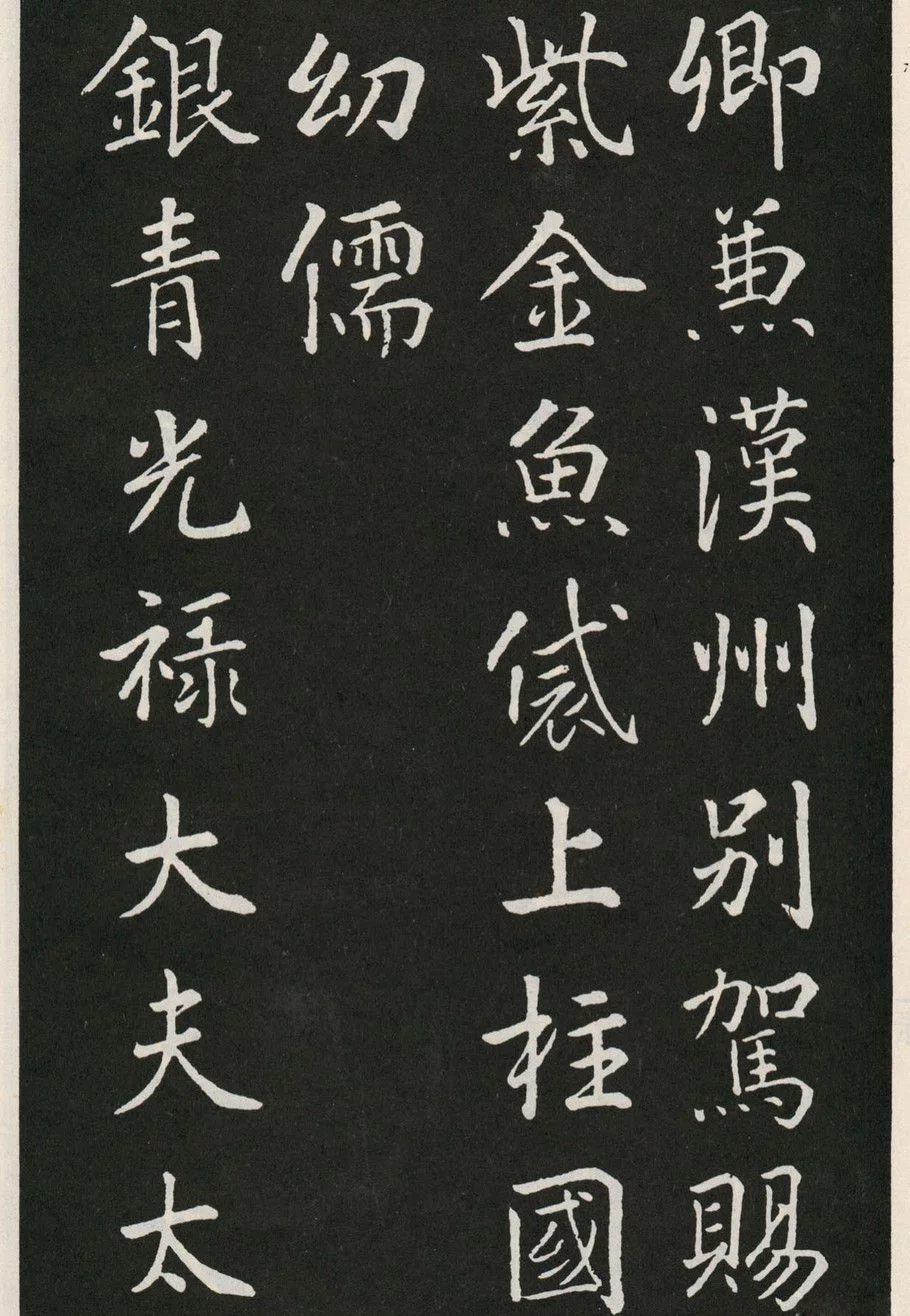 卿兼漢州別駕賜
紫金魚袋上柱國
幼儒
銀青光祿大夫太
7